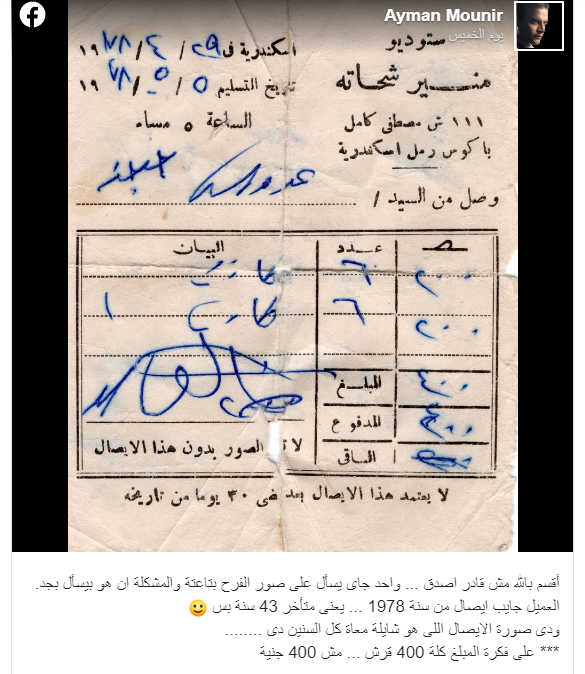 Ayman Mounir
يوم الخميس
ستوديو
منير شحاته
١١١ ش مصطفى كامل
باكوس رمل اسكندرية
اسكندرية فى ٢٩ / ٤ / ١٩٧٨
تاريخ التسليم ٥ / ٥ / ١٩٧٨
الساعة ٥ مساء
وصل من السيد /
البيان عدد صـ
كارت ٦ ٢٠٠
كارت ٦ ٢٠٠
المبلغ ٤٠٠
المدفوع
الباقى
الصور بدون هذا الايصال
لا يعتمد هذا الايصال بعد مضى ٣٠ يوما من تاريخه
أقسم بالله مش قادر اصدق ... واحد جاى يسأل على صور الفرح بتاعتة والمشكلة ان هو بيسأل بجد.
العميل جايب ايصال من سنة 1978 ... يعنى متأخر 43 سنة بس 🙂
ودى صورة الايصال اللى هو شايلة معاة كل السنين دى ........
*** على فكرة المبلغ كلة 400 قرش ... مش 400 جنية